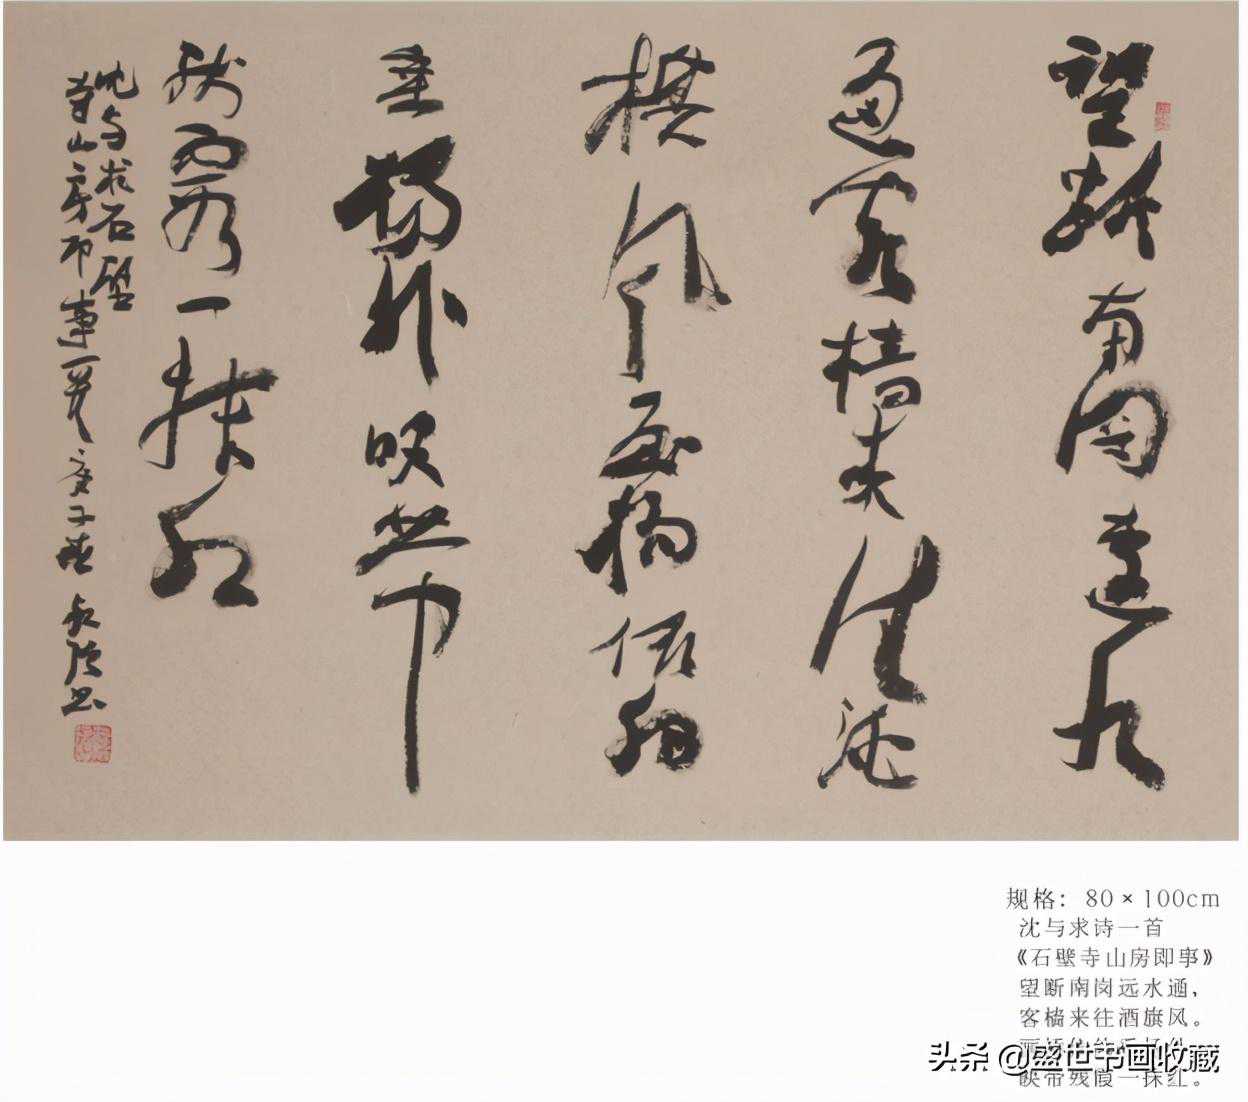 望断南岡遠水
通客樯来往酒
旗风画橋依约
垂杨外映带
残霞一抹红
沈与求石壁
寺山房即事一首 庚子春
规格：80×100cm
沈与求诗一首
《石壁寺山房即事》
望断南岗远水通，
客樯来往酒旗风。
映带残霞一抹红。
头条 @盛世书画收藏